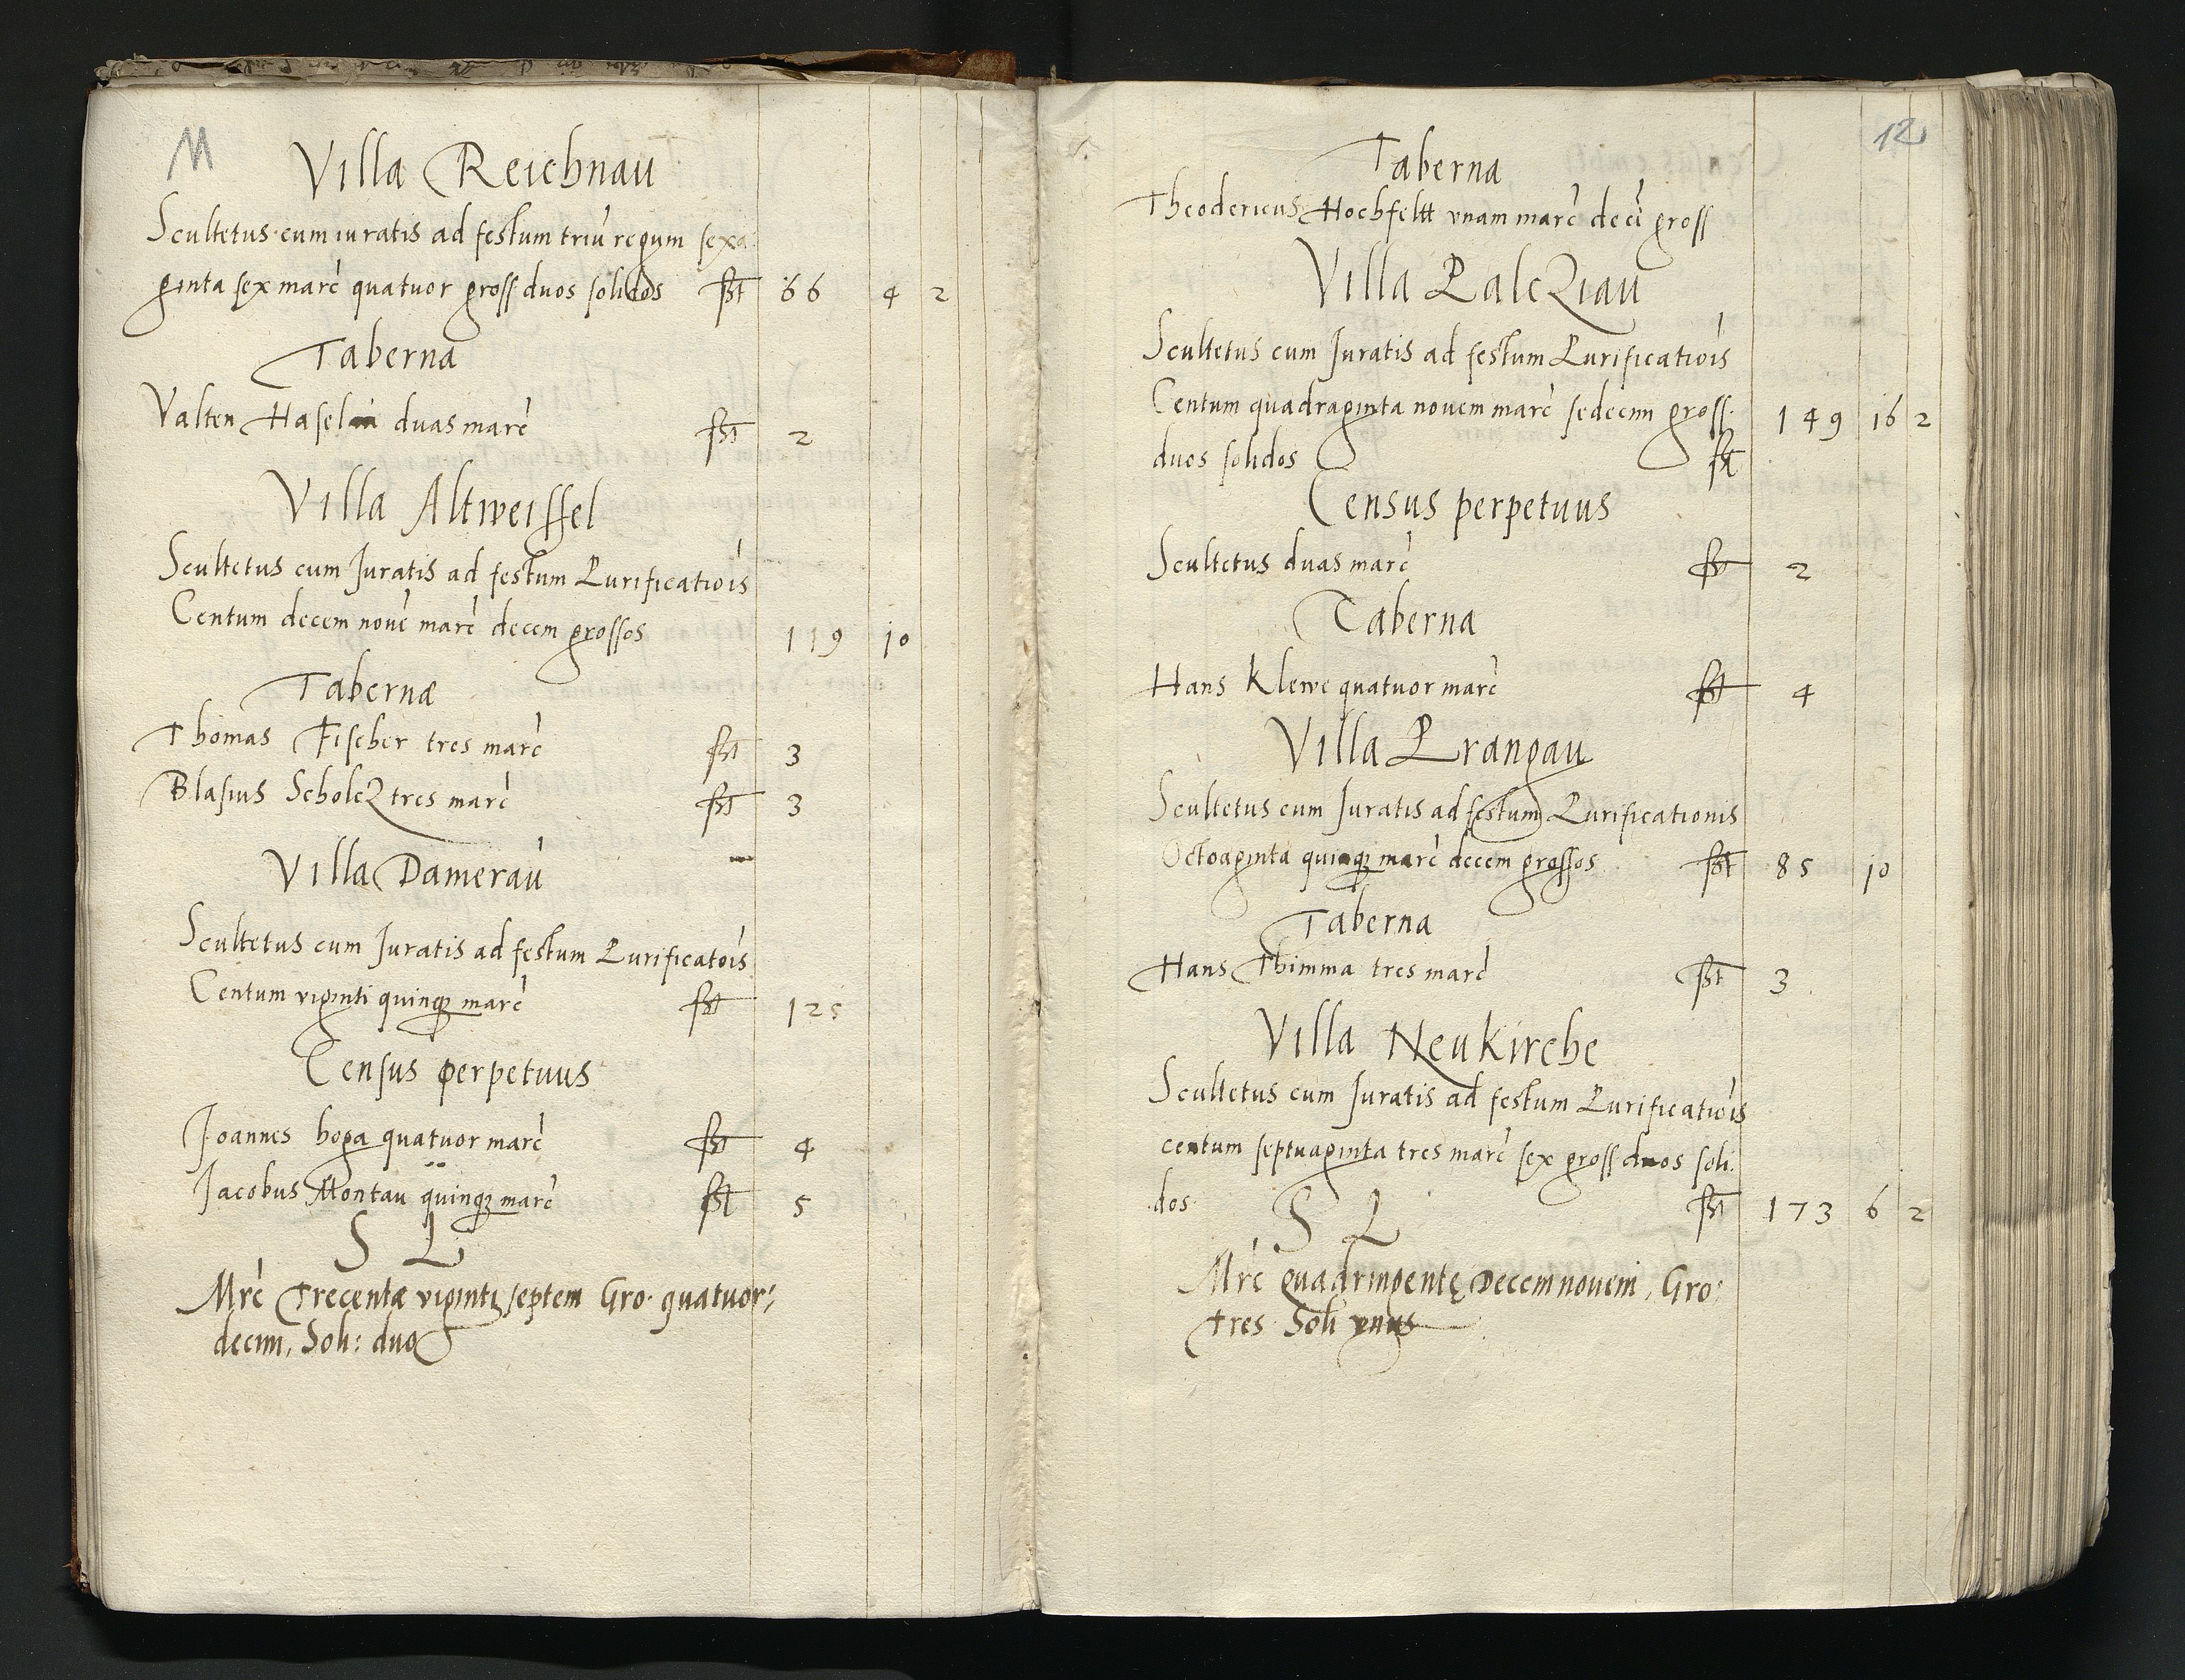 11
Villa Reichnau
Scultetus cum iuratis ad festum triū regum sexa
ginta sex marc̀ quatuor gross duos solidos fẞt 66 4 2
Taberna
Valten duas marc̀ fẞt 2
Villa Altweissel
Scultetus cum Juratis ad festum Purificatiōis
Centum decem novē marc̀ decem grossos 119 10
Tabernæ
Thomas Fischer tres marc̀ fẞt 3
Blasius Scholcz tres marc̀ fẞt 3
Villa Damerau
Scultetus cum Juratis ad festum Purificatōis
Centum viginti quinqꝫ marc̀ fẞt 125
Census perpetuus
Joannes boga quatuor marc̀ fẞt 4
Jacobus Montau quinqꝫ marc̀ fẞt 5
S L
Mrc̀ Trecentæ viginti septem Gro. quatuor:
decim, Soli: duo
12
Taberna
Theodericus Hochfeltt vnam marc̀ decē gross
Villa Palcziau
Scultetus cum Juratis ad festum Purificatiōis
Centum quadraginta novem marc̀ sedecim gross. 149 16 2
duos solidos fẞt
Census perpetuus
Scultetus duas marc̀ fẞt 2
Taberna
Hans Klewe quatuor marc̀ fẞt 4
Villa Prangau
Scultetus cum Juratis ad festum Purificationis
Octoaginta quinqꝫ marc̀ decem grossos fẞt 85 10
Taberna
Hans Thimma tres marc̀ fẞt 3
Villa Neukirche
Scultetus cum Juratis ad festum Purificatiōis
centum septuaginta tres marc̀ sex gross duos soli.
dos fẞt 173 6 2
S L
Mrc̀ quadringentę Decemnovem, Gro:
tres Soli vnus